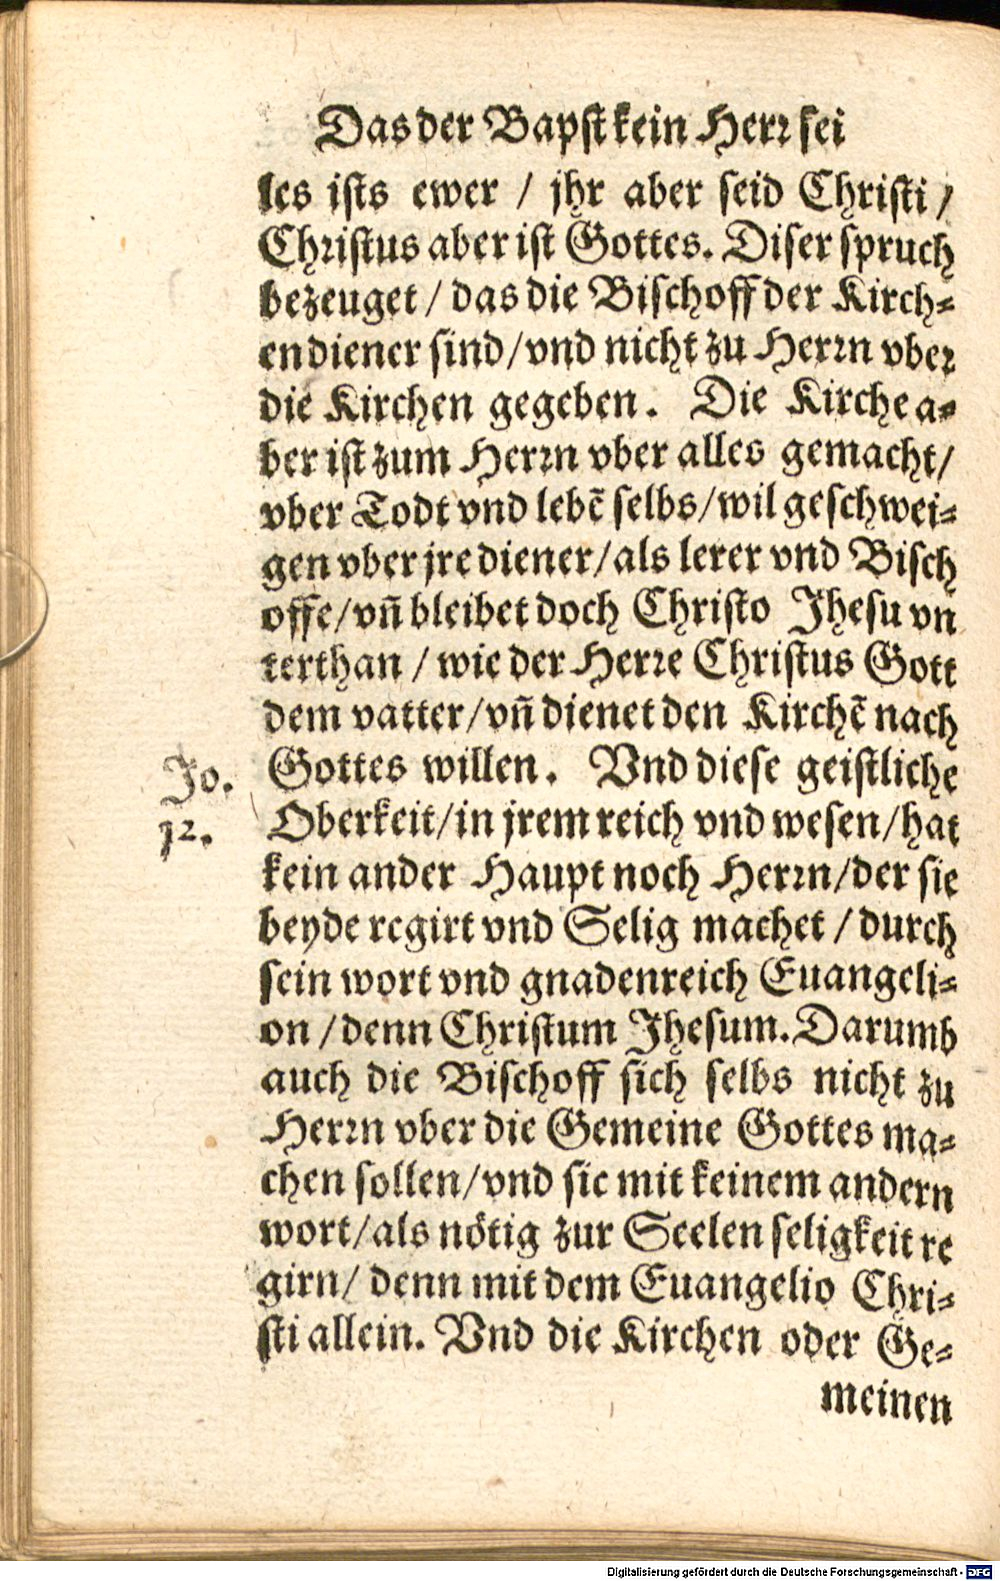 Das der Bapst kein Herr sei
les ists ewer / jhr aber seid Christi /
Christus aber ist Gottes. Diser spruch
bezeuget / das die Bischoff der Kirch-
en diener sind / vnd nicht zu Herrn vber
die Kirchen gegeben. Die Kirche a-
ber ist zum Herrn vber alles gemacht /
vber Todt vnd lebē selbs / wil geschwei-
gen vber jre diener / als lerer vnd Bisch
offe / vn̄ bleibet doch Christo Jhesu vn
terthan / wie der Herre Christus Gott
dem vatter / vn̄ dienet den Kirchē nach
Gottes willen. Vnd diese geistliche
Jo.
12.
Oberkeit / in jrem reich vnd wesen / hat
kein ander Haupt noch Herrn / der sie
beyde regirt vnd Selig machet / durch
sein wort vnd gnadenreich Euangeli-
on / denn Christum Jhesum. Darumb
auch die Bischoff sich selbs nicht zu
Herrn vber die Gemeine Gottes ma-
chen sollen / vnd sie mit keinem andern
wort / als nötig zur Seelen seligkeit re
girn / denn mit dem Euangelio Chri-
sti allein. Vnd die Kirchen oder Ge-
meinen
Digitalisierung gefördert durch die Deutsche Forschungsgemeinschaft - DFG